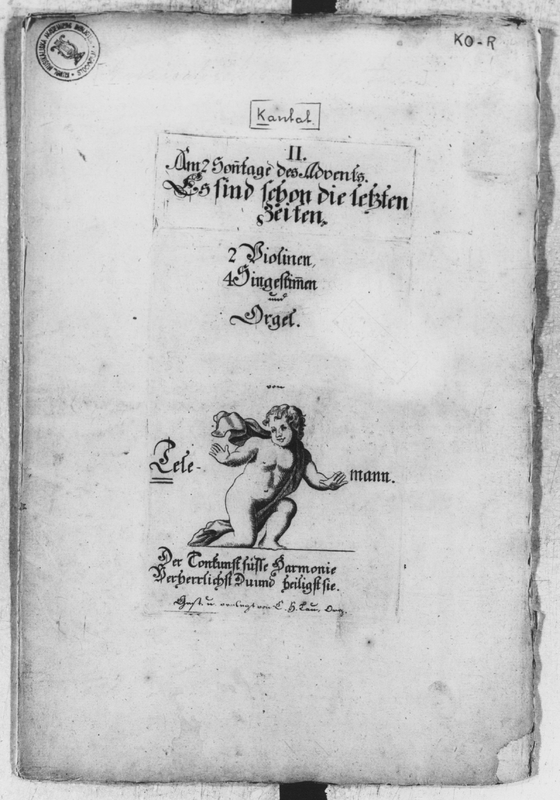 KO-R
Kantat
II.
Am 2 Soñtage des Advents.
Es sind schon die letzten
Zeiten.
2 Violinen,
4 Singestim̃en
und
Orgel.
von
Tele- mann.
Der Tonkunst süsse Harmonie
Verherrlichst Du und heiligst sie.
Gest. u. verlegt von C. H. Lau, Org.